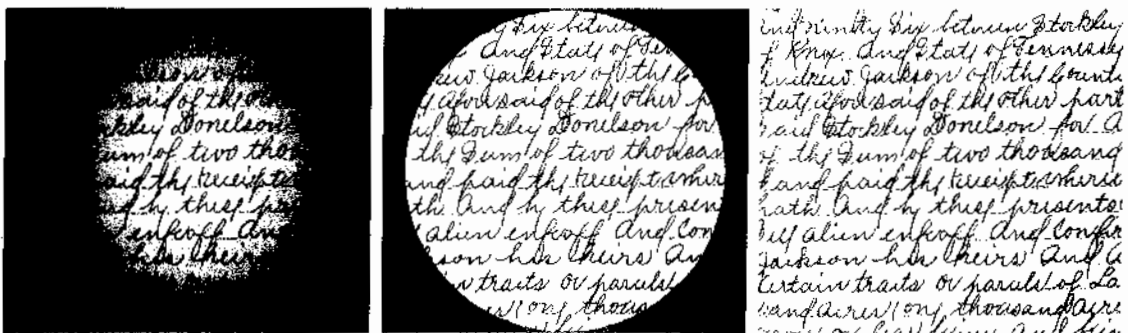 of the
Donelson
um of two
the receipt
by these
enfeoff An
his heirs
Six between
And State of Ten
Jackson of the
aforesaid of the other
Stockley Donelson for
the Sum of two thousan
and paid the receipt
And by these presen
alien enfeoff And Con
his heirs An
tracts or parcels
thous
ninety Six between Stockley
Knox And State of Tennessee
Andrew Jackson of the Count
aforesaid of the other part
aid Stockley Donelson for A
the Sum of two thousand
and paid the receipt
hath And by these presents
alien enfeoff And Confir
Jackson his heirs And A
Certain tracts or parcels of La
sand acres thousand acre